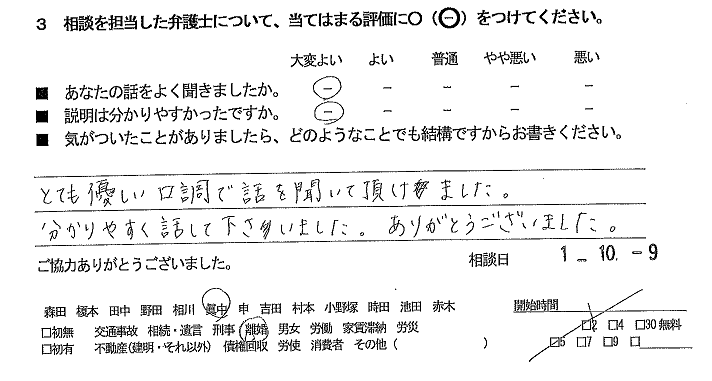 3 相談を担当した弁護士について、当てはまる評価に○(㊀)をつけてください。
大変よい よい 普通 やや悪い 悪い
■ あなたの話をよく聞きましたか。 － － － － －
■ 説明は分かりやすかったですか。 － － － － －
■ 気がついたことがありましたら、どのようなことでも結構ですからお書きください。
とても優しい口調で話を聞いて頂けました。
分かりやすく話して下さいました。ありがとうございました。
ご協力ありがとうございました。 相談日 1 - 10. - 9
森田 榎本 田中 野田 相川 眞中 申 吉田 村本 小野塚 時田 池田 赤木 開始時間
□初無 交通事故 相続・遺言 刑事 離婚 男女 労働 家賃滞納 労災 □2 □4 □30 無料
□初有 不動産(建明・それ以外) 債権回収 労使 消費者 その他 ( ) □5 □7 □9 □